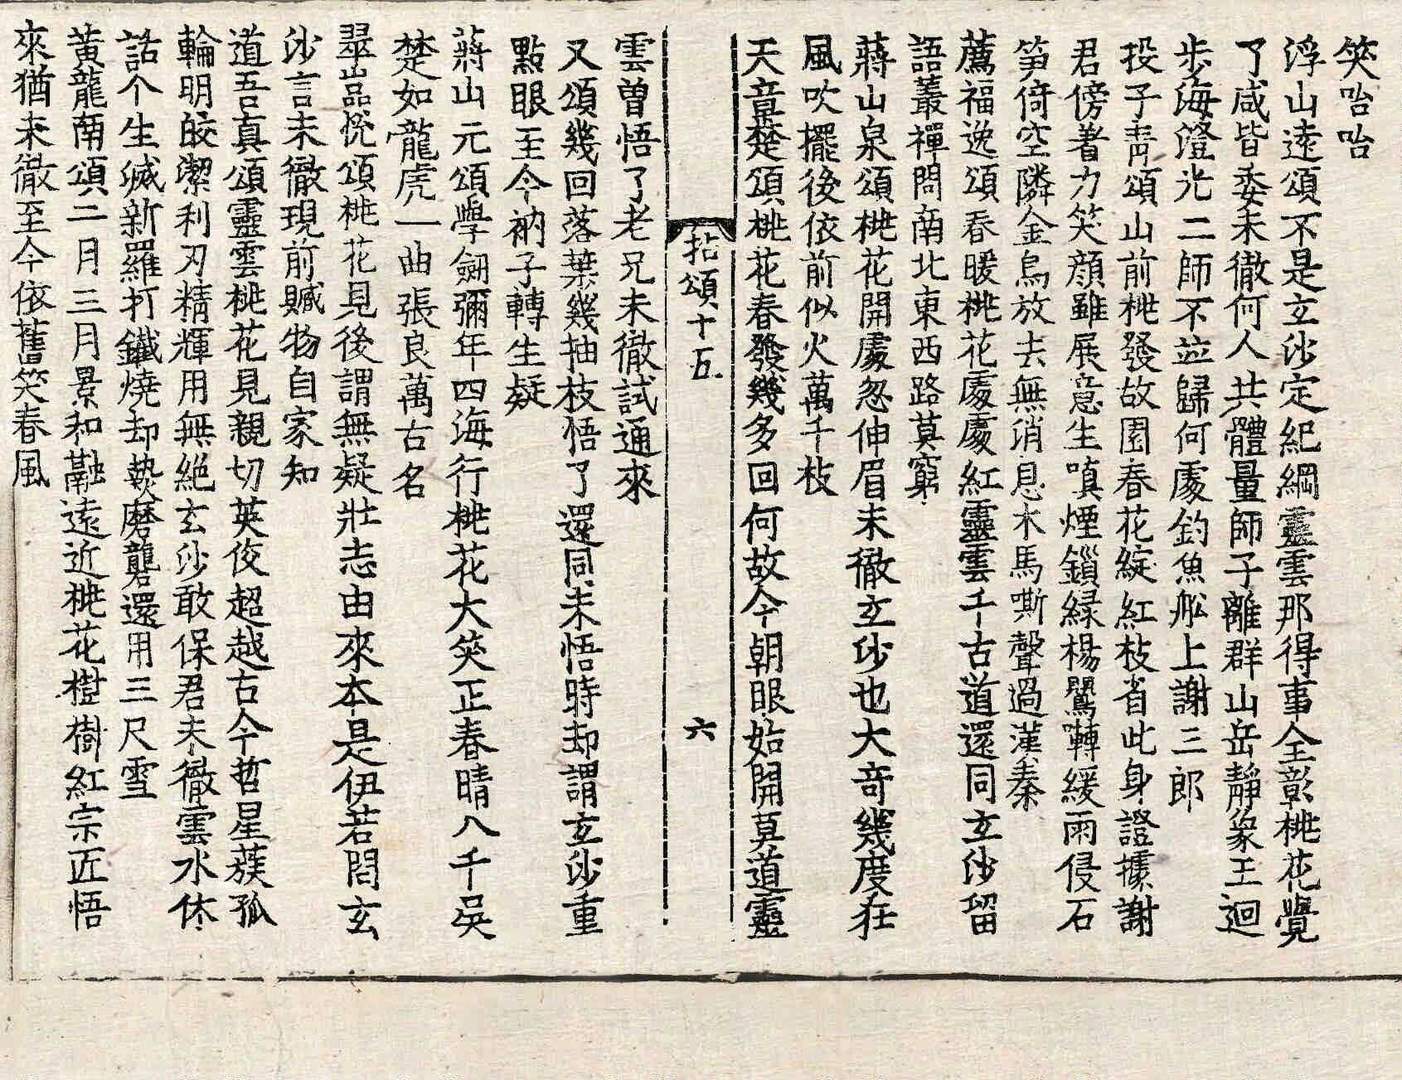 笑咍咍
浮山遠頌不是玄沙定紀綱靈雲那得事全彰桃花覺
了咸皆委未徹何人共體量師子離群山岳靜象王迴
步海澄光二師不並歸何處釣魚舩上謝三郎
投子靑頌山前桃發故園春花綻紅枝省此身證據謝
君傍著力笑顔雖展意生嗔煙鎖緑楊鸎囀緩雨侵石
笋倚空隣金烏放去無消息木馬嘶聲過漢秦
薦福逸頌春暖桃花處處紅靈雲千古道還同玄沙留
語叢禪問南北東西路莫窮
蔣山泉頌桃花開處忽伸眉未徹玄沙也大奇幾度狂
風吹擺後依前似火萬千枝
天章楚頌桃花春發幾多回何故今朝眼始開莫道靈
拈頌十五 六
雲曽悟了老兄未徹試通來
又頌幾回落葉幾抽枝悟了還同未悟時却謂玄沙重
點眼至今衲子轉生疑
蔣山元頌學劒彌年四海行桃花大笑正春晴八千吳
楚如龍虎一曲張良萬古名
翠嵓悅頌桃花見後謂無疑壯志由來本是伊若問玄
沙言未徹現前贓物自家知
道吾真頌靈雲桃花見親切英俊超越古今哲星蔟孤
輪明皎潔利刃精輝用無絶玄沙敢保君未徹雲水休
話个生㓕新羅打鐵燒却𤍠磨礲還用三尺雪
黃龍南頌二月三月景和融遠近桃花樹樹紅宗匠悟
來猶未徹至今依舊笑春風